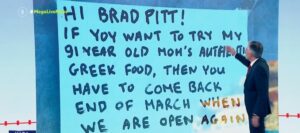 #MegaLiveNews
HI BRAD PITT!
IF YOY WANT TO TRY MY
91 YEAR OLD MOM'S AUTHENTIC
GREEK FOOD, THEN YOU
HAVE TO COME BACK
END OF MARCH WHEN
WE ARE OPEN AGAIN